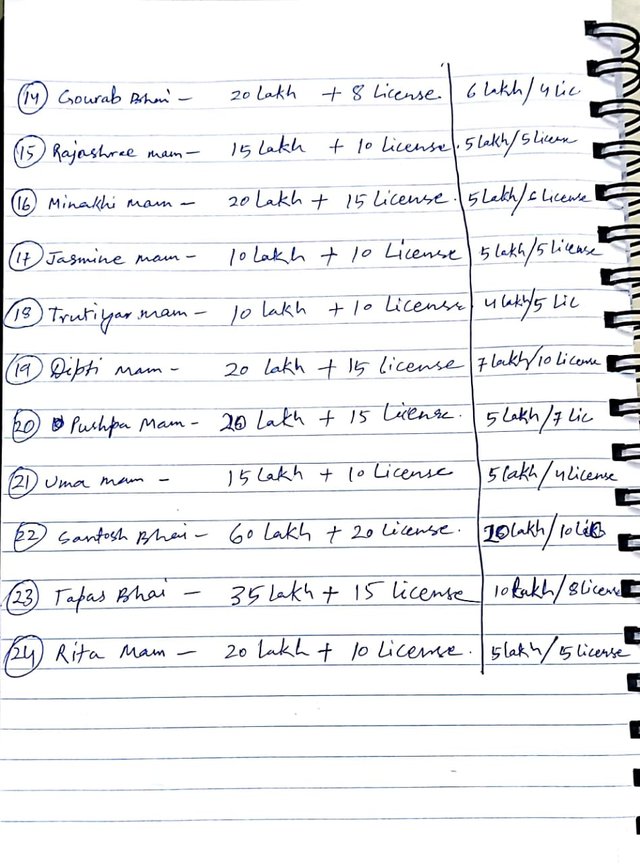 14 Gourab Bhai – 20 Lakh + 8 License. 6 Lakh/4 Lic
15 Rajashree mam – 15 Lakh + 10 License. 5 Lakh/5 License
16 Minakhi mam – 20 Lakh + 15 License. 5 Lakh/6 License
17 Jasmine mam – 10 Lakh + 10 License 5 Lakh/5 License
18 Trutiyar mam – 10 Lakh + 10 License 4 Lakh/5 Lic
19 Dipti mam – 20 Lakh + 15 license 7 Lakh/10 License
20 Pushpa Mam – 20 Lakh + 15 License. 5 Lakh/7 Lic
21 Uma mam – 15 Lakh + 10 License 5 Lakh/4 License
22 Santosh Bhai – 60 Lakh + 20 License. Lakh/10
23 Tapas Bhai – 35 Lakh + 15 License 10 Lakh/8 License
24 Rita Mam – 20 Lakh + 10 License. 5 Lakh/5 license